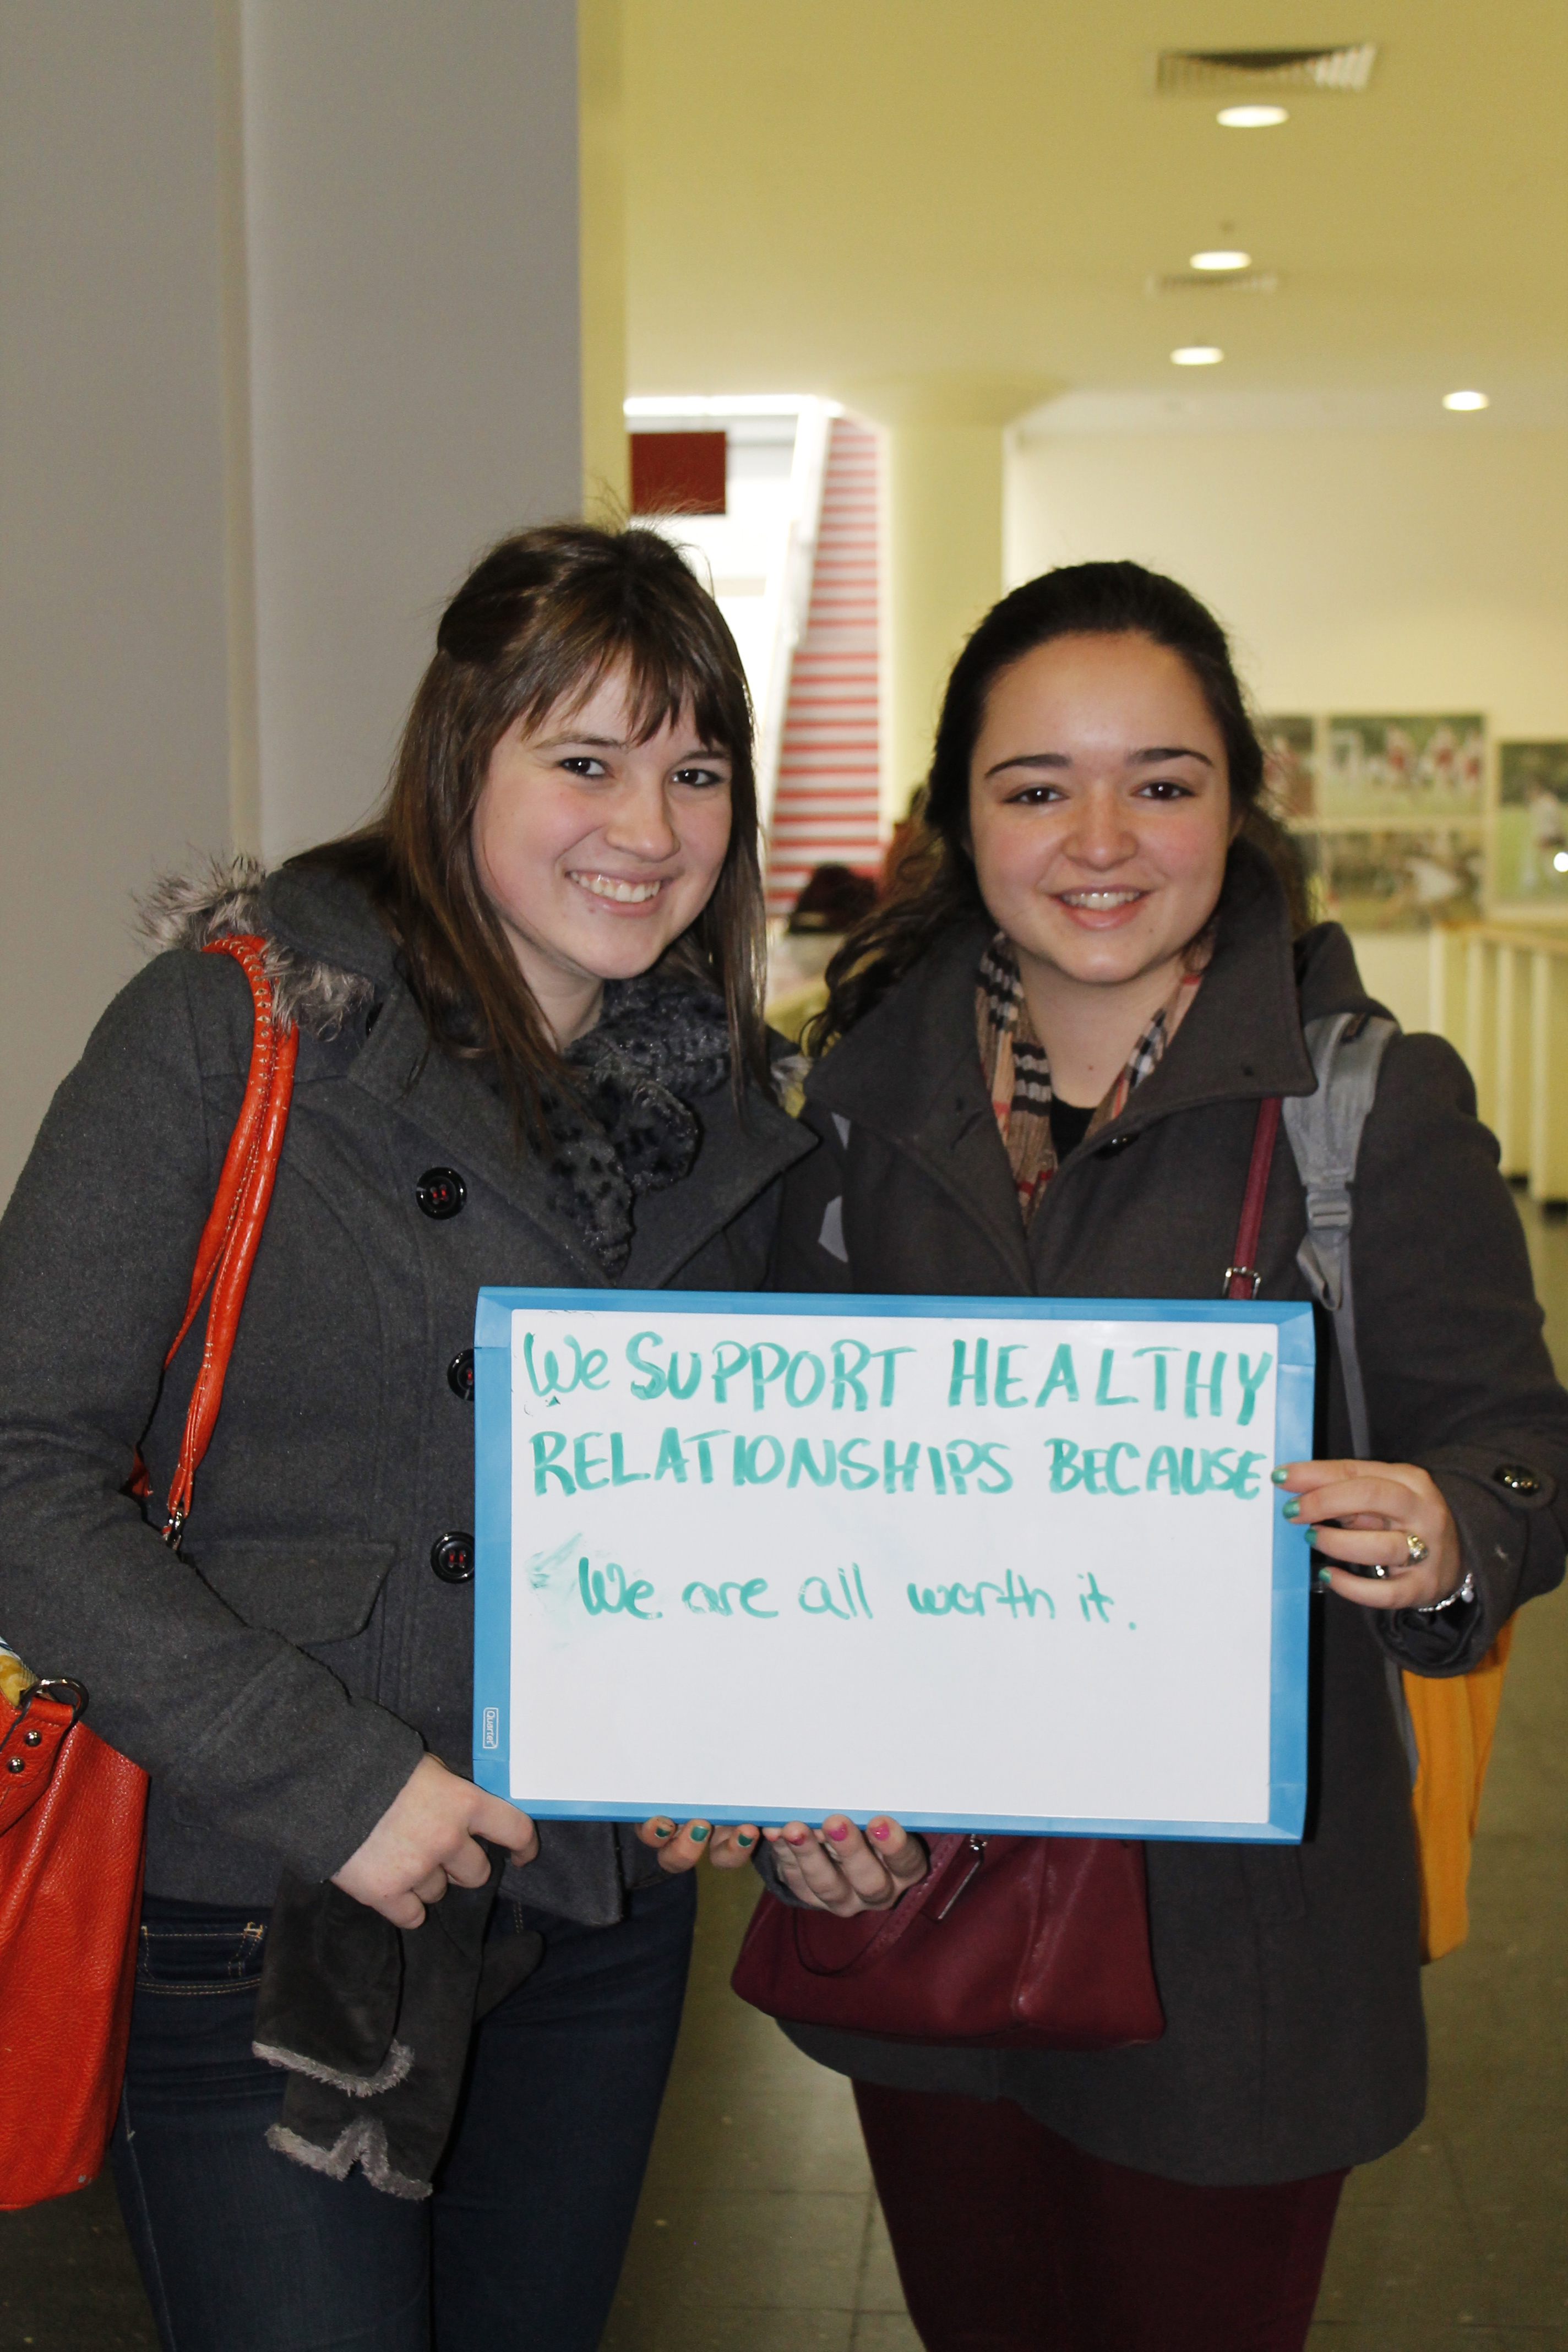 We SUPPORT HEALTHY
RELATIONSHIPS BECAUSE
We are all worth it.
Quartet